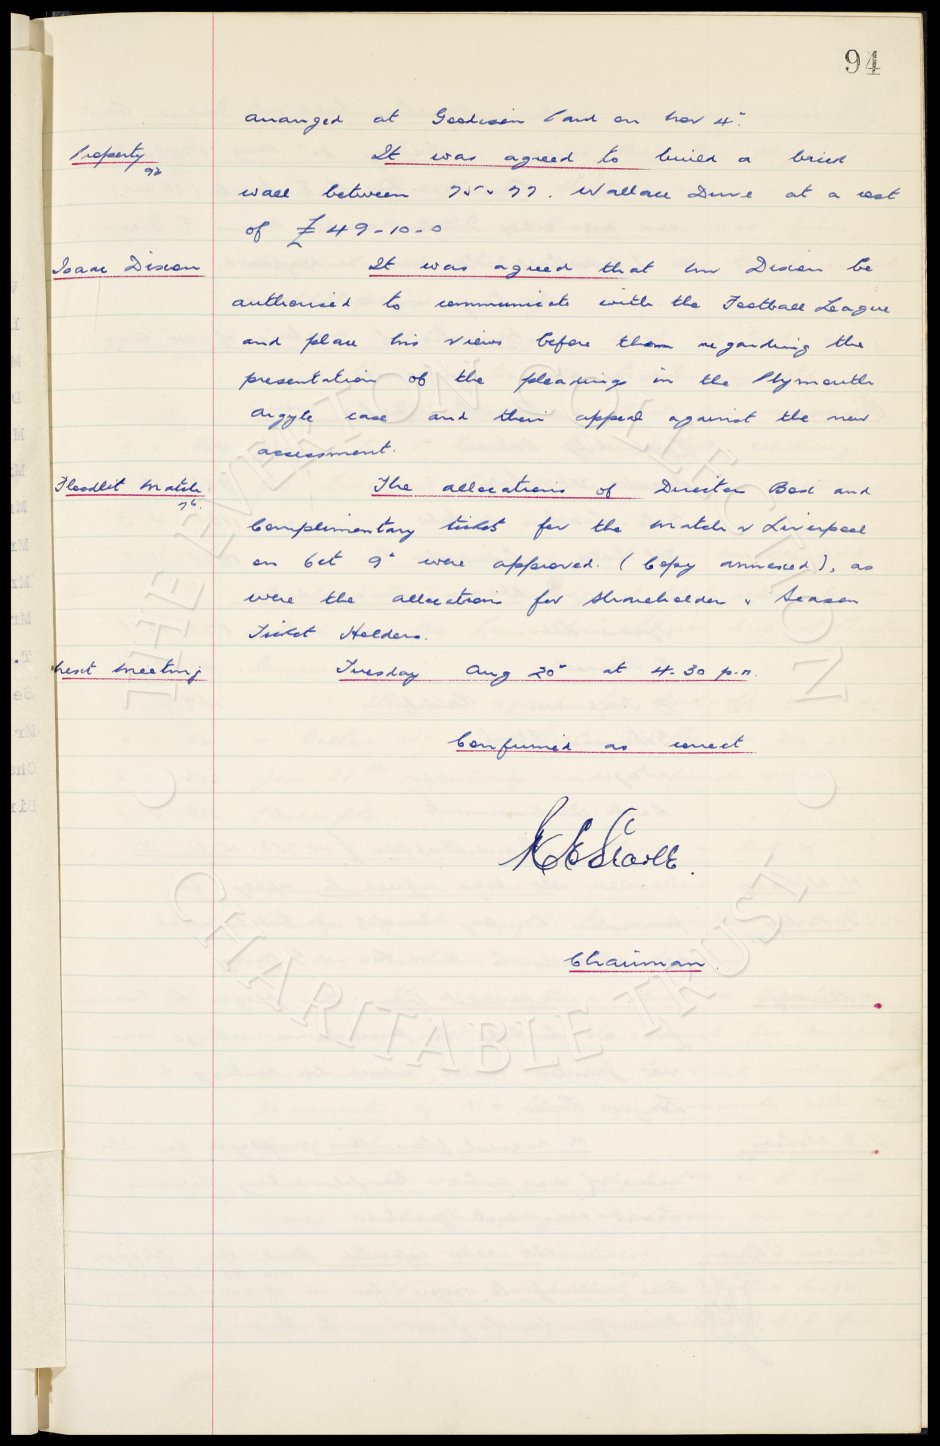 94
arranged at Goodison Park on Nov 4".
Property It was agreed to build a brick
92
wall between 75 & 77. Wallace Drive at a cost
of £49-10-0
Isaac Dixon It was agreed that Mr Dixon be
authorised to communicate with the Football League
and place his views before them regarding the
presentation of the pleadings in the Plymouth
Argyle case and their appeal against the new
assessment.
Floodlit Match The allocations of Directors Box and
76.
Complimentary tickets for the match v Liverpool
on Oct 9" were approved. (Copy annexed), as
were the allocations for Shareholders & Season
Ticket Holders.
Next Meeting Tuesday Aug 20" at 4-30 p.m.
Confirmed as correct
Chairman.
© THE EVERTON COLLECTION ©
CHARITABLE TRUST